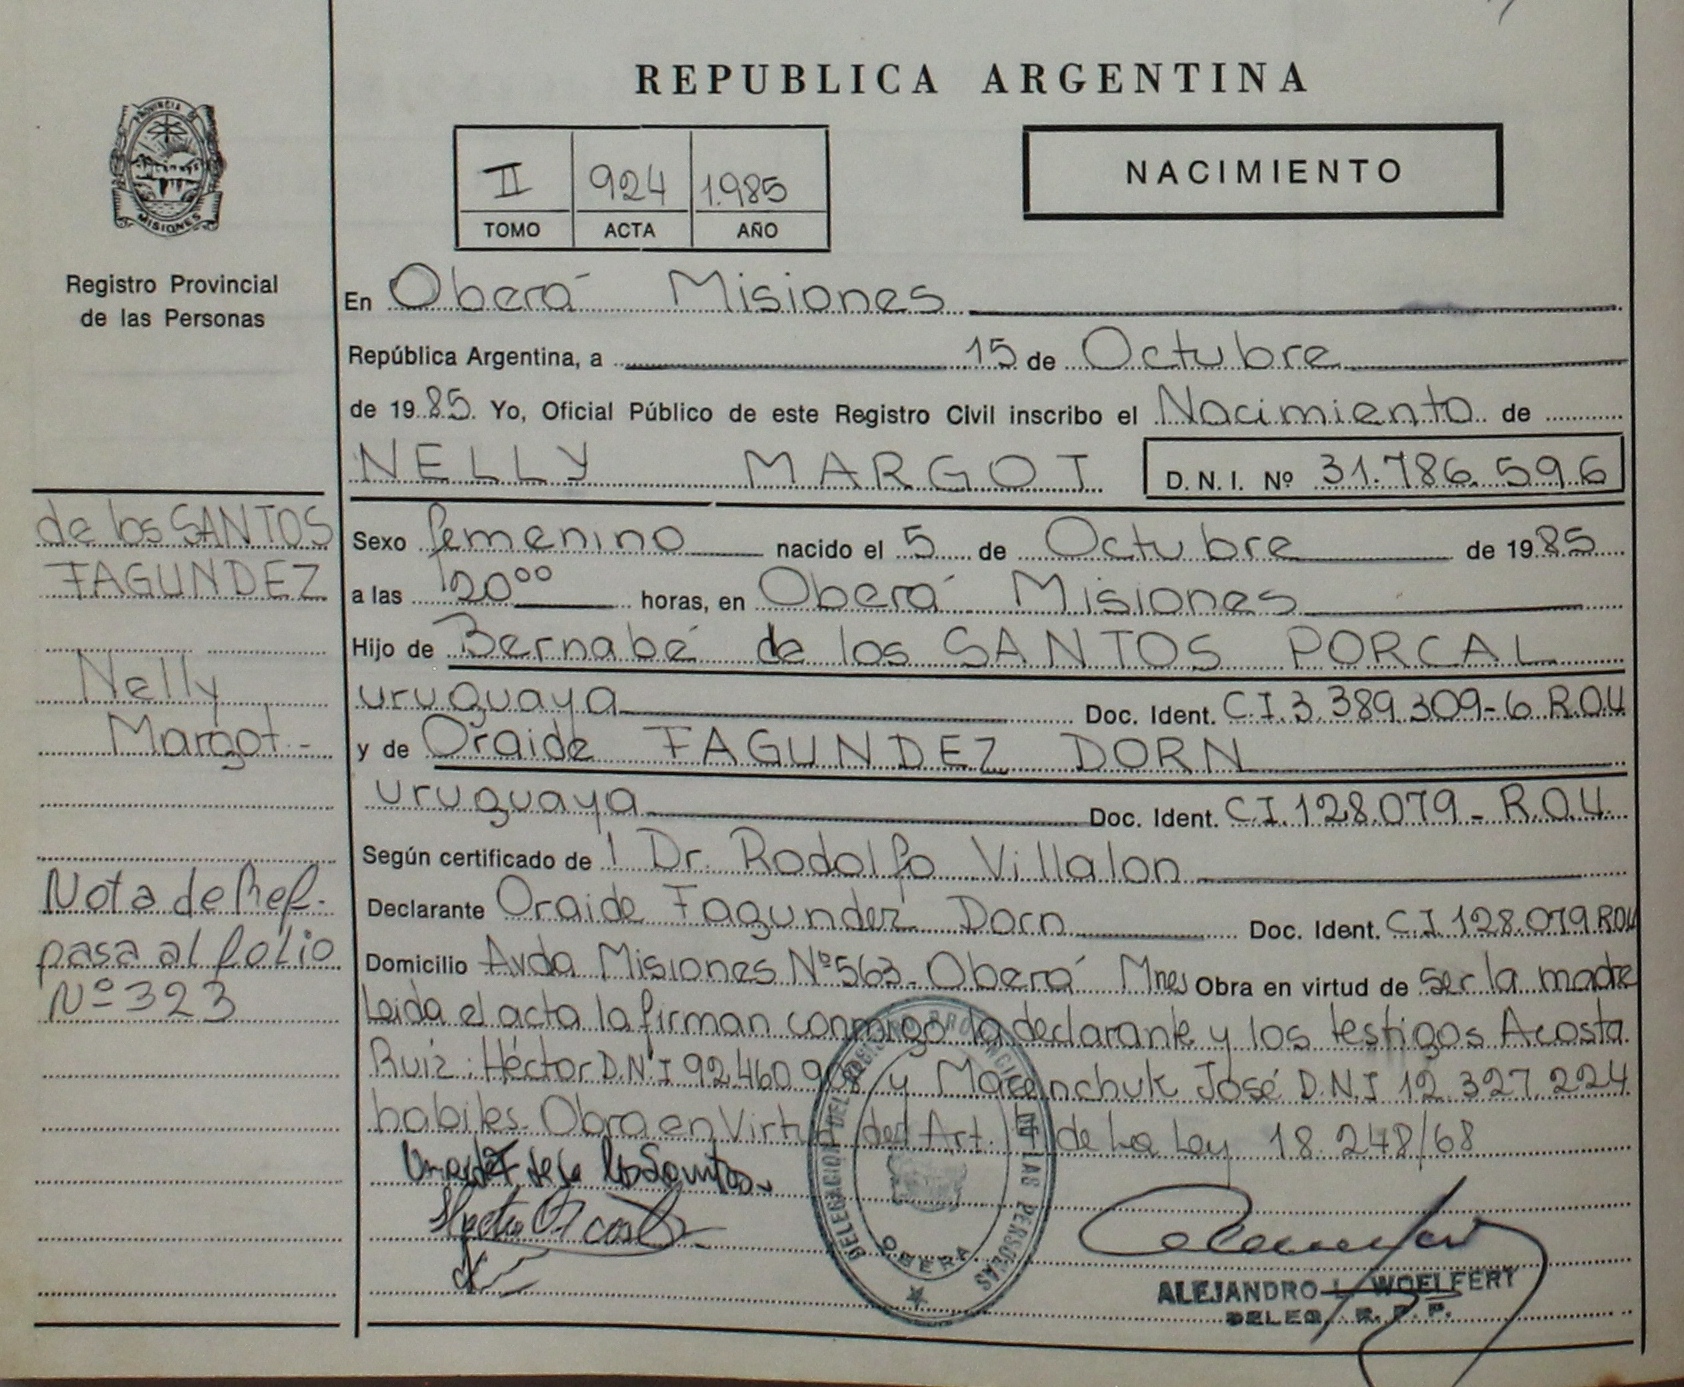 REPUBLICA ARGENTINA
PROVINCIA DE MISIONES
II 924 1.985
TOMO ACTA AÑO
NACIMIENTO
Registro Provincial
de las Personas
En Oberá Misiones
República Argentina, a 15 de Octubre
de 1985. Yo, Oficial Público de este Registro Civil inscribo el Nacimiento de
NELLY MARGOT D. N. I. Nº 31.786.596
de los SANTOS
FAGUNDEZ
Nelly
Margot.-
Nota de Ref.
pasa al folio
Nº 323
Sexo femenino nacido el 5 de Octubre de 1985
a las 20⁰⁰ horas, en Oberá Misiones
Hijo de Bernabé de los SANTOS PORCAL
uruguaya Doc. Ident. C.I.3.389.309-6 R.O.U
y de Oraide FAGUNDEZ DORN
uruguaya Doc. Ident. C.I.128.079- R.O.U.
Según certificado de l Dr. Rodolfo Villalon
Declarante Oraide Fagundez Dorn Doc. Ident. C.I 128.079 ROU
Domicilio Avda Misiones Nº563- Oberá Mnes Obra en virtud de ser la madre
Leida el acta la firman conmigo la declarante y los testigos Acosta
Ruiz: Héctor D.N.I 92.460.908 y Marenchuk José D.N.I 12.327.224
habiles. Obra en Virtud del Art. de La Ley 18.248/68
DELEGACION DEL REGISTRO PROVINCIAL DE LAS PERSONAS
OBERA
ALEJANDRO L. WOELFERT
DELEG. R. P. P.